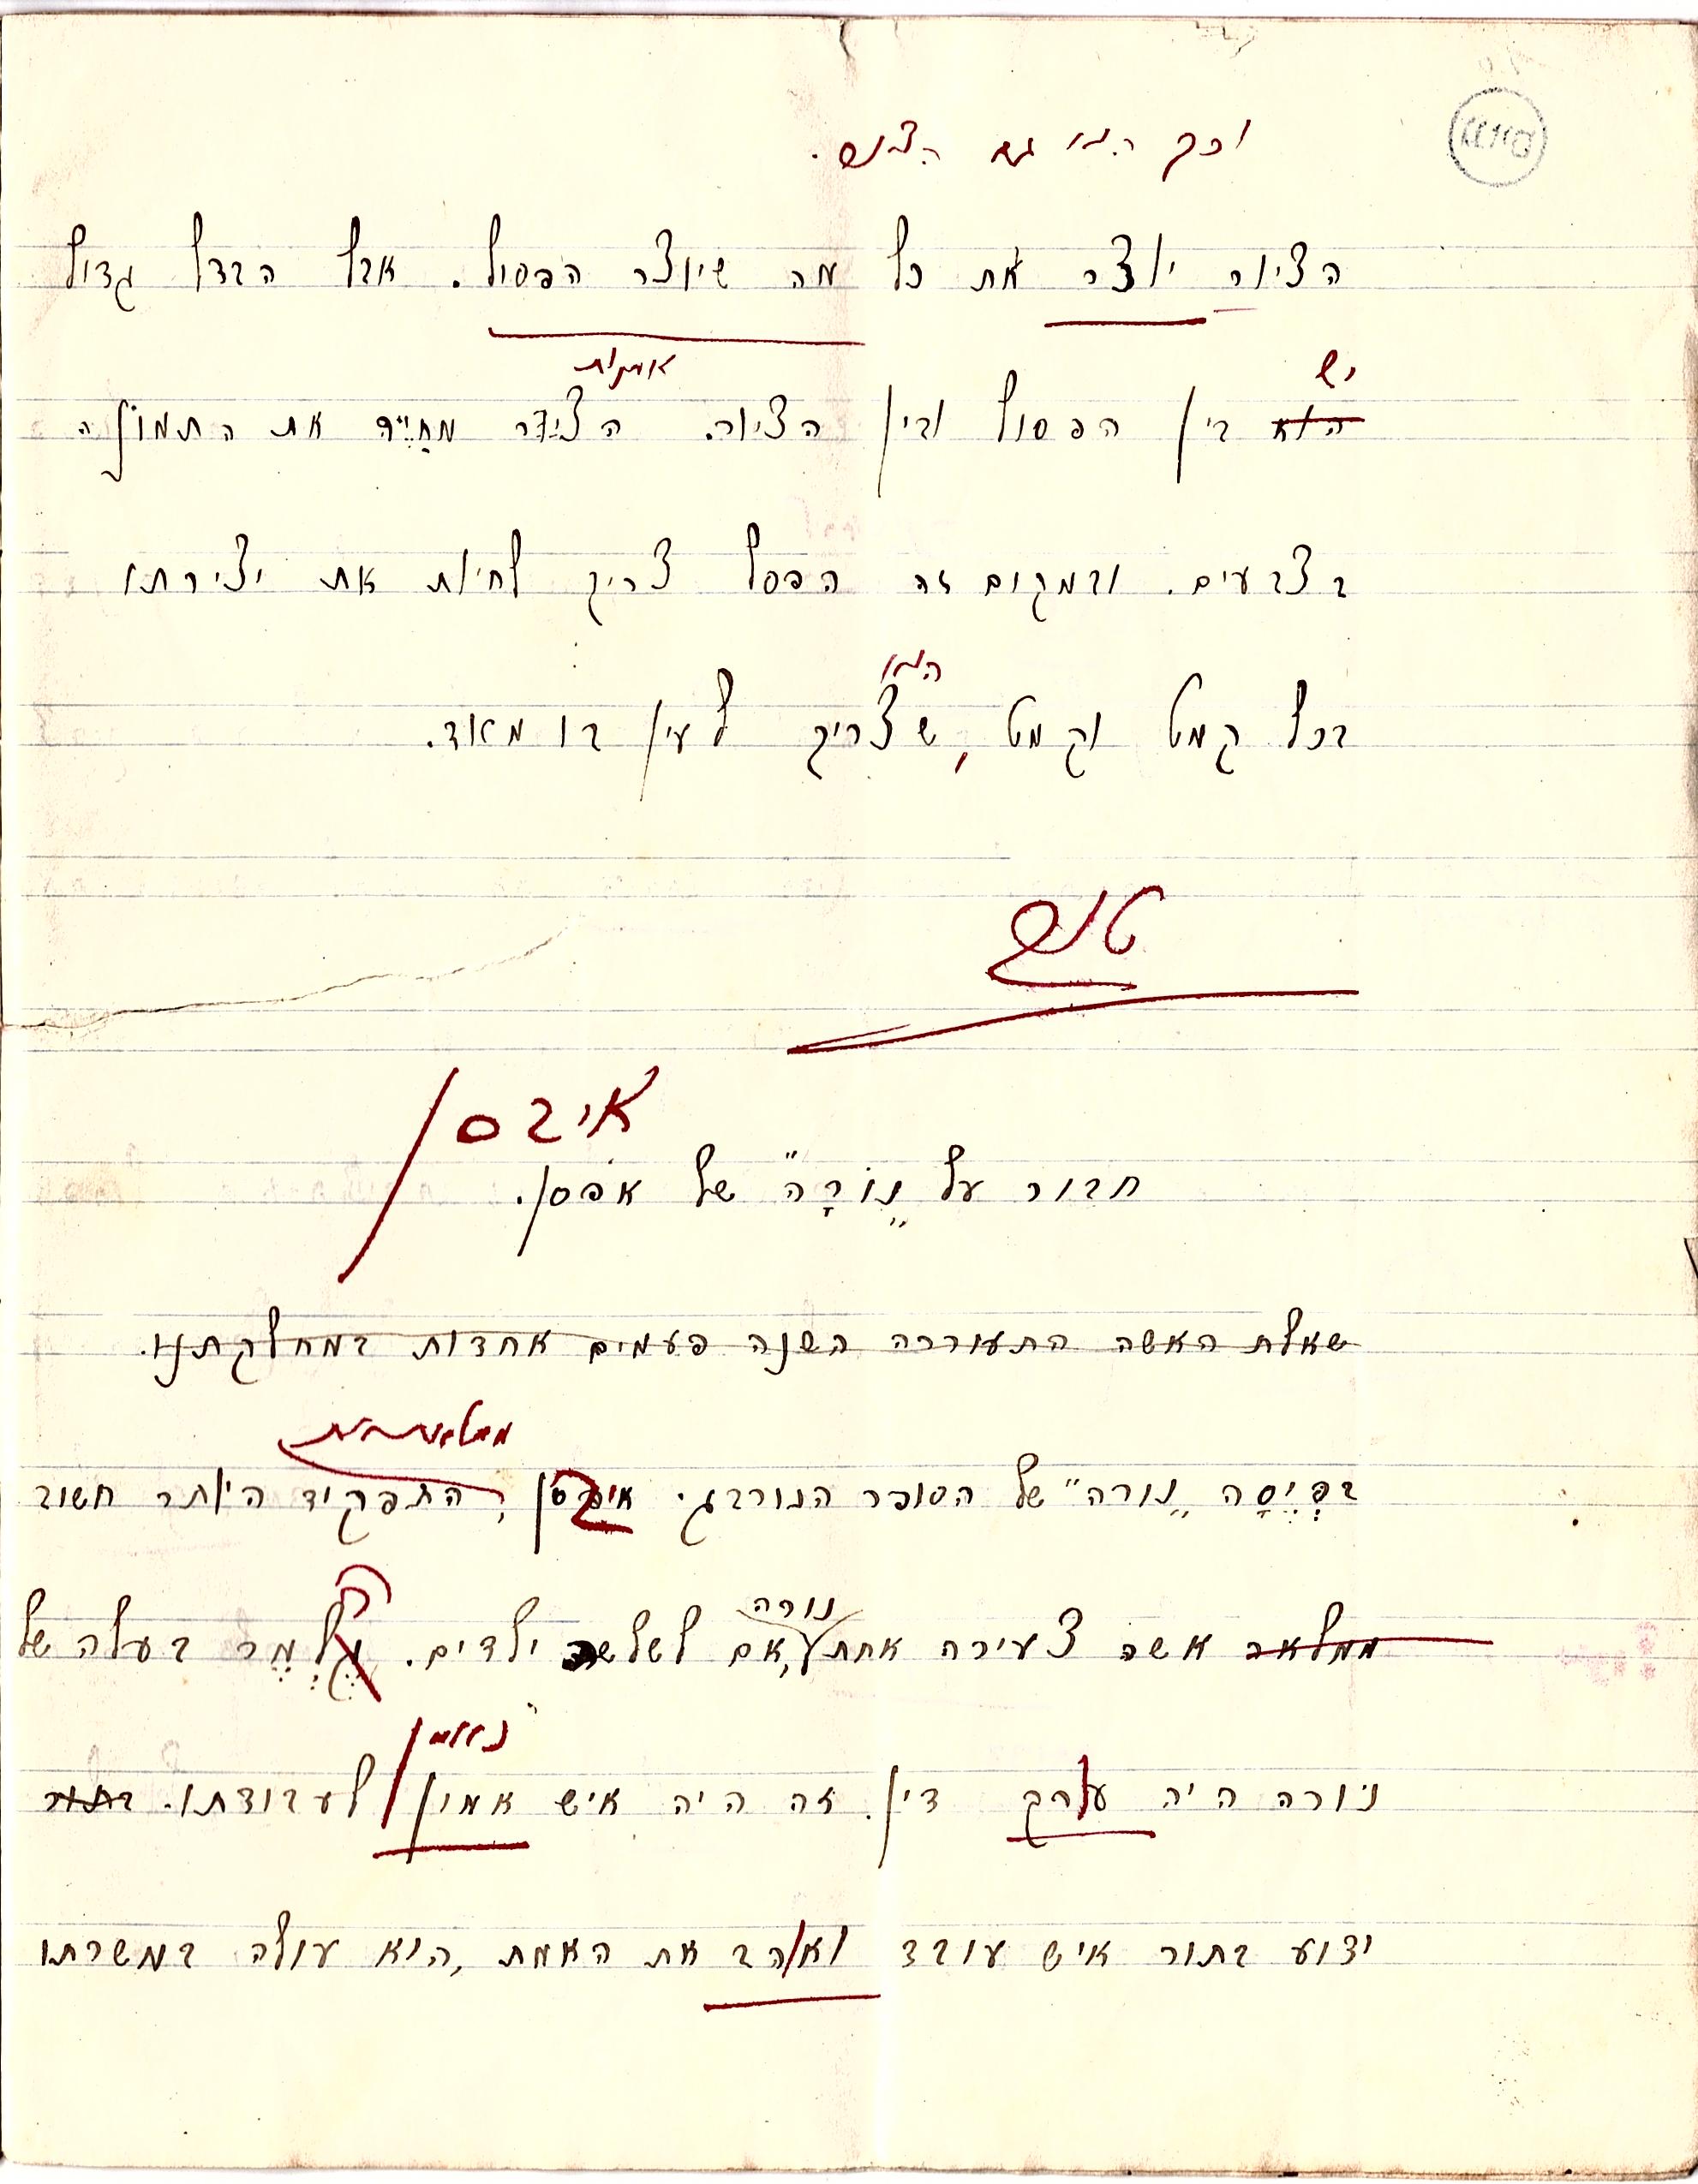 וכך הוא גם הצלם.
הציור יוצר את כל מה שיוצר הפסול. אבל הבדל גדול
יש
הוא בין הפסול ובין הציור. הצַיָּר מחַיֶּה את התמונה
בצבעים. ובמקום זה הפסל צריך לחיות את יצירתו
הוא
בכל קמט וקמט, שצריך לעין בו מאוד.
טוב
איבסן
חבור על "נוֹרָה" של אפסן.
שאלת האשה התעוררה השנה פעמים אחדות במחלקתנו.
בפְּיֶסָה "נורה" של הסופר הנורבגי איבסן, התפקיד היותר חשוב
נורה
ממלאה אשה צעירה אחת, אם לשלשה ילדים. הֶלְמֶר בעלה של
נורה היה עורך דין. זה היה איש אמון לעבודתו. בתור
ידוע בתור איש עובד ואוהב את האמת, הוא עולה במשרתו